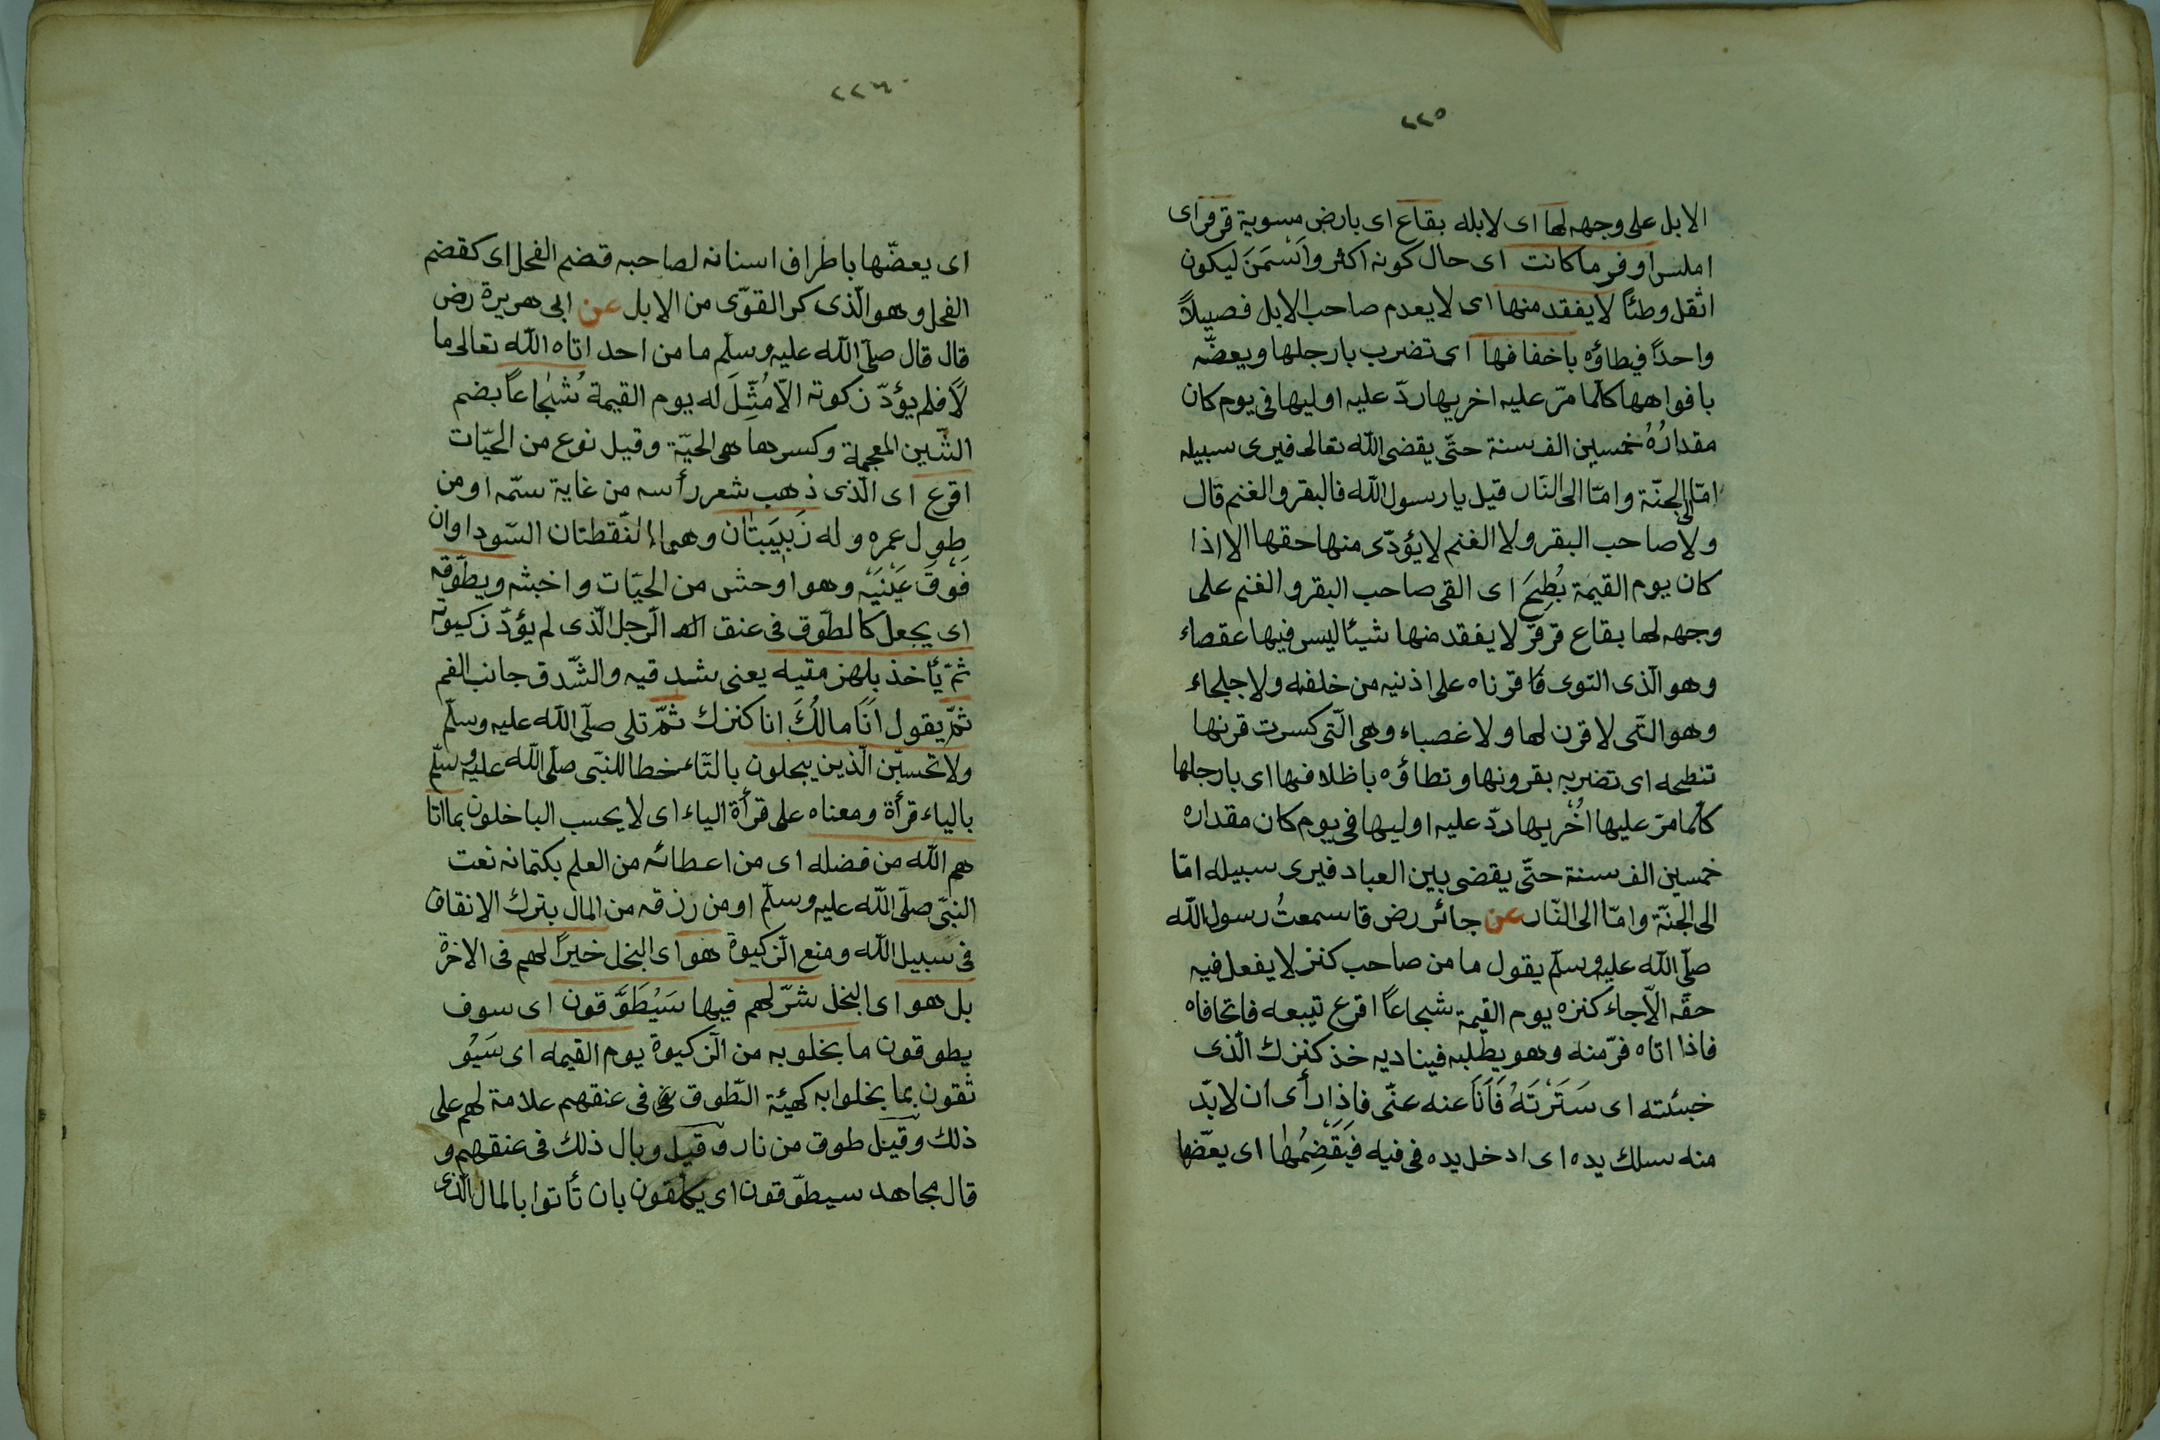 ٢٢٥
الابل على وجهه لها اى لابله بقاع اى بارض مسوية قرقر اى
املس اوفر ما كانت اى حال كونه اكثر واَسْمَنَ ليكون
اثقل وطئًا لا يفقد منها اى لا يعدم صاحب الابل فصيلاً
واحدًا فيطاؤه باخفافها اى تضرب بارجلها ويعضّه
بافواهها كلّما مرّ عليه اخريها ردّ عليه اوليها فى يوم كان
مقدارُهُ خمسين الف سنة حتّى يقضى الله تعالى فيرى سبيله
امّا الى الجنّة وامّا الى النّار قيل يا رسول الله فالبقر والغنم قال
ولا صاحب البقر ولا الغنم لا يؤدّى منها حقها الا اذا
كان يوم القيمة بُطِحَ اى القى صاحب البقر والغنم على
وجهه لها بقاع قرقر لا يفقد منها شيئا ليس فيها عقصاء
وهو الّذى التوى قرناه على اذنيه من خلفه ولا جلجاء
وهو التّى لا قرن لها ولا غصباء وهى الّتى كسرت قرنها
تنطحه اى تضربه بقرونها وتطاؤه باظلافها اى بارجلها
كلّما مرّ عليها اُخْريها ردّ عليه اوليها فى يوم كان مقداره
خمسين الف سنة حتّى يقضى بين العباد فيرى سبيله امّا
الى الجنّة وامّا الى النّار عن جائر رض قا سمعتُ رسول الله
صلّى الله عليه وسلّم يقول ما من صاحب كنز لا يفعل فيه
حقّه الّا جاء كنزه يوم القيمة شجاعًا اقرع تيبعه فاتحا فاه
فاذا اتاه فرّ منه وهو يطلبه فيناديه خذ كنزك الّذى
خبئته اى سَتَرْتَهُ فَاَنَا عنه عنّى فاذا رأى ان لا بدّ
منه سلك يده اى ادخل يده فى فيه فَيَقْضِمُهٰا اى يعضّها
٢٢٦
اى يعضّها باطراف اسنانه لصاحبه قضم الفحل اى كقضم
الفحل وهو الّذى كر القوّى من الابل عن ابى هريرة رض
قال قال صلّى الله عليه وسلّم ما من احد اتاه الله تعالى ما
لاً فلم يؤدّ زكوته الّا مُثِّلَ له يوم القيمة شُجٰاعاً بضم
الشّين المعجمة وكسرها هى الحيّة وقيل نوع من الحيّات
اقرع اى الّذى ذهب شعر رأسه من غاية سمّه او من
طول عمره وله زَبيَبتٰان وهما النّقطتان السّوداوان
فَوْقَ عَيْنَيْه وهو اوحش من الحيّات واخبثه ويطوّقه
اى يجعل كالطّوق فى عنق الرّجل الّذى لم يؤدّ زكيوته
ثمّ يأخذ بلهزمقيه يعنى شدقيه والشّدق جانب الفم
ثمّ يقول اَنَا مالُكَ انا كنزك ثمّ تلى صلّى الله عليه وسلّم
ولا تحسبّن الّذين يبجلون بالتّاء خطا للنبّى صلّى الله عليه وسلّم
بالياء قرأة ومعناه على قرأة الياء اى لا يحسب الباخلون بما اتا
هم الله من فضله اى من اعطائه من العلم بكتمانه نعت
النبّى صلّى الله عليه وسلّم او من رزقه من المال بترك الانفاق
فى سبيل الله ومنع الزّكيوة هو اى البخل خيرًا لهم فى الاخرة
بل هو اى البخل شرّ لهم فيها سَيُطَوَّقون اى سوف
يطوقون ما بخلو به من الزّكيوة يوم القيمه اى سَيُو
ثقون بما بخلوا به كهيئة الطّوق فى عنقهم علامة لهم على
ذلك وقيل طوق من نار وقيل وبال ذلك فى عنقهم و
قال مجاهد سيطوّقون اى يكلّفون بان تأتوا بالمال الّذى